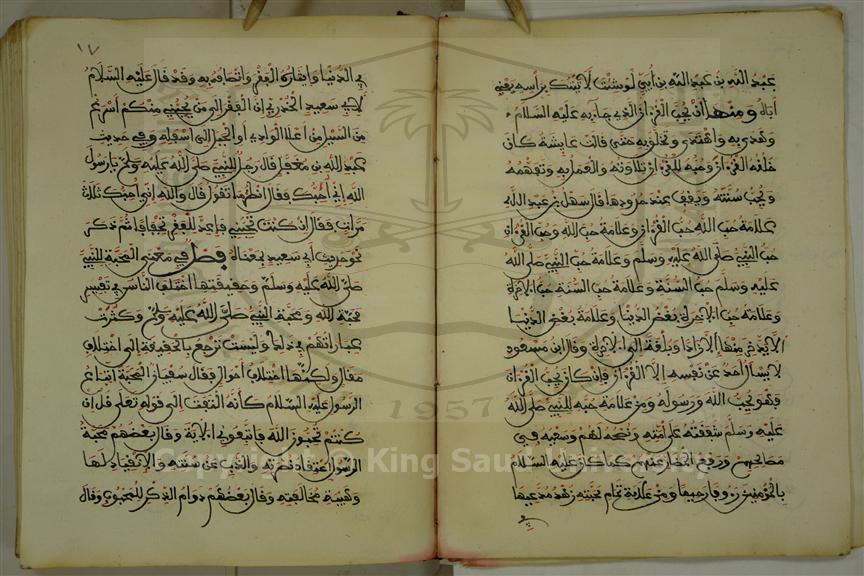 عبد الله بن عبد الله بن أبي لو شئت لأتيتك برأسه يعني
أباه ومنها أن يحب القرءان الذي جاء به عليه السلام
وهدى به واهتدى وتخلق به حتى قالت عايشة كان
خلقه القرءان وحبه للقرءان تلاوته والعمل به وتفهمه
ويحب سنته ويقف عند حدودها قال سهل بن عبد الله
علامة حب الله حب القرءان وعلامة حب الله وحب القرءان
حب النبي صلى الله عليه وسلم وعلامة حب النبي صلى الله
عليه وسلم حب السنة وعلامة حب السنة حب الاخرة
وعلامة حب الاخرة بغض الدنيا وعلامة بغض الدنيا
ألا يدخر منها إلا زادا وبلغة إلى الاخرة وقال ابن مسعود
لا يسأل أحد عن نفسه إلا القرءان فإن كان يحب القرءان
فهو يحب الله ورسوله ومن علامة حبه للنبي صلى الله
عليه وسلم شفقته على أمته ونصحه لهم وسعيه في
مصالحهم ورفع المضار عنهم كما كان عليه السلام
بالمؤمنين رءوفا رحيما ومن علامة تمام محبته زهد مدعيها
في
١٧
في الدنيا وإيثاره الفقر واتصافه به وقد قال عليه السلام
لأبي سعيد الخدري إن الفقر إلى من يحبني منكم أسرع
من السيل من أعلا الوادي أو الجبل إلى أسفله وفي حديث
عبد الله بن مغفل قال رجل للنبي صلى الله عليه وسلم يا رسول
الله إني أحبك فقال انظر ما تقول قال والله إني أحبك ثلاث
مرات فقال إن كنت تحبني فأعد للفقر تجفافا ثم ذكر
نحو حديث أبي سعيد بمعناه فصل في معنى المحبة للنبي
صلى الله عليه وسلم وحقيقتها اختلف الناس في تفسير
محبة الله ومحبة النبي صلى الله عليه وسلم وكثرت
عباراتهم في ذلك وليست ترجع بالحقيقة إلى اختلاف
مقال ولكنها اختلاف أحوال فقال سفيان المحبة اتباع
الرسول عليه السلام كأنه التفت إلى قوله تعلى قل إن
كنتم تحبون الله فاتبعوني الاية وقال بعضهم محبة
الرسول اعتقاد نصرته والذب عن سنته والانقياد لها
وهيبة مخالفته وقال بعضهم دوام الذكر للمحبوب وقال
Copyright © King Saud University
1957